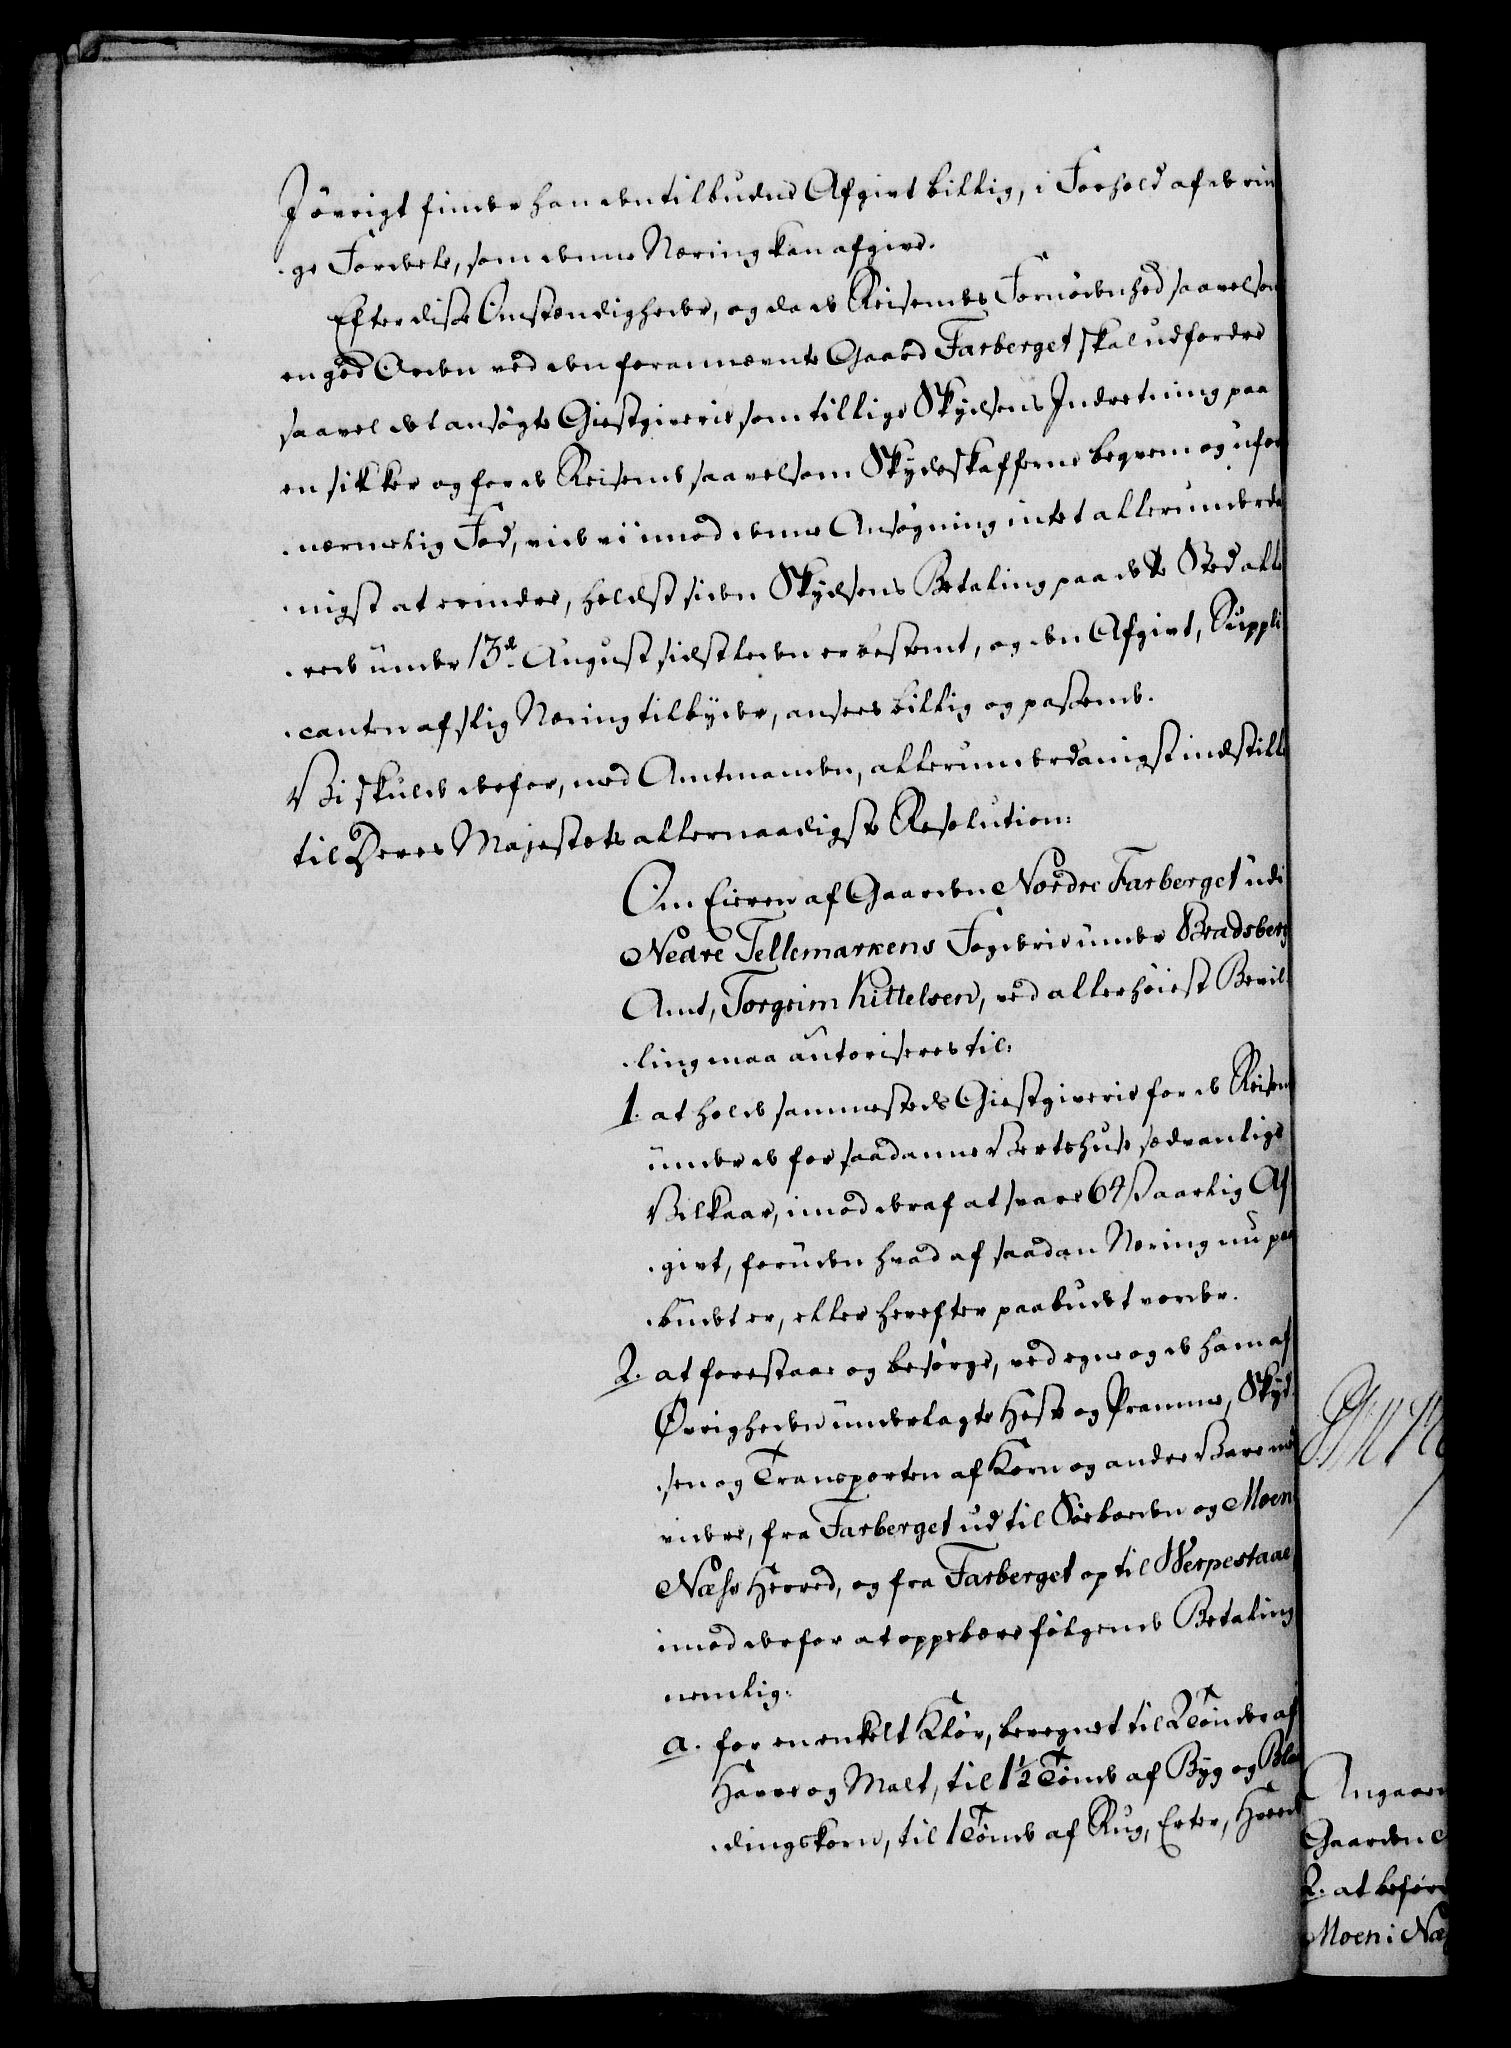 I øvrigt finder han den tilbudne Afgivt billig, i Forhold af de rin
ge Fordele, som denne Næring kan afgive.
Efter disse Omstændigheder, og da de Reisendes Fornødenhed saavelsom
en god Orden ved den forannævnte Gaard Farberget skal udfordre
saavel det ansøgte Giestgiverie som tillige Skydsens Indretning paa
en sikker og for de Reisende saavelsom Skydsskafferne beqvem og ufor
nærmelig Fod, vide vi imod denne Ansøgning intet allerunderda
nigst at erindre, heldst siden Skydsens Betaling paa dette Sted alle
rede under 13de August sidstleden er bestemt, og den Afgivt, Suppli
canten af slig Næring tilbyder, ansees billig og passende.
Vi skulde derfor, med Amtmanden, allerunderdanigst indstille
til Deres Majestæts allernaadigste Resolution:
Om Eieren af Gaarden Nordre Farberget udi
Nedre Tellemarkens Fogderie under Bradsberg
Amt, Torgrim Kittelsen, ved allerhøiest Bevil
ling maa autoriseres til:
1. at holde sammesteds Giestgiverie for de Reisen
under de for saadanne Vertshuse sædvanlige
Vilkaar, imod deraf at svare 64 s aarlig Af
givt, foruden hvad af saadan Næring nu paa
budet er, eller herefter paabudet vorder.
2. at forestaae og besørge, ved egne og de ham af
Øvrigheden underlagte Heste og Pramme, Skyd
sen og Transporten af Korn og andre Vare med
videre, fra Farberget ud til Søeborden og Moen
Næss Herred, og fra Farberget op til Werpestaae
imod derfor at oppebære følgende Betaling
nemlig:
a. for en enkelt Kløv, beregnet til 2 Tønder af
Havre og Malt, til 1½ Tønde af Byg og Bla
dingskorn, til 1 Tønde af Rug, Erter, Hvede
Angaaen
Gaarden
2. at befør
Moen i Næ